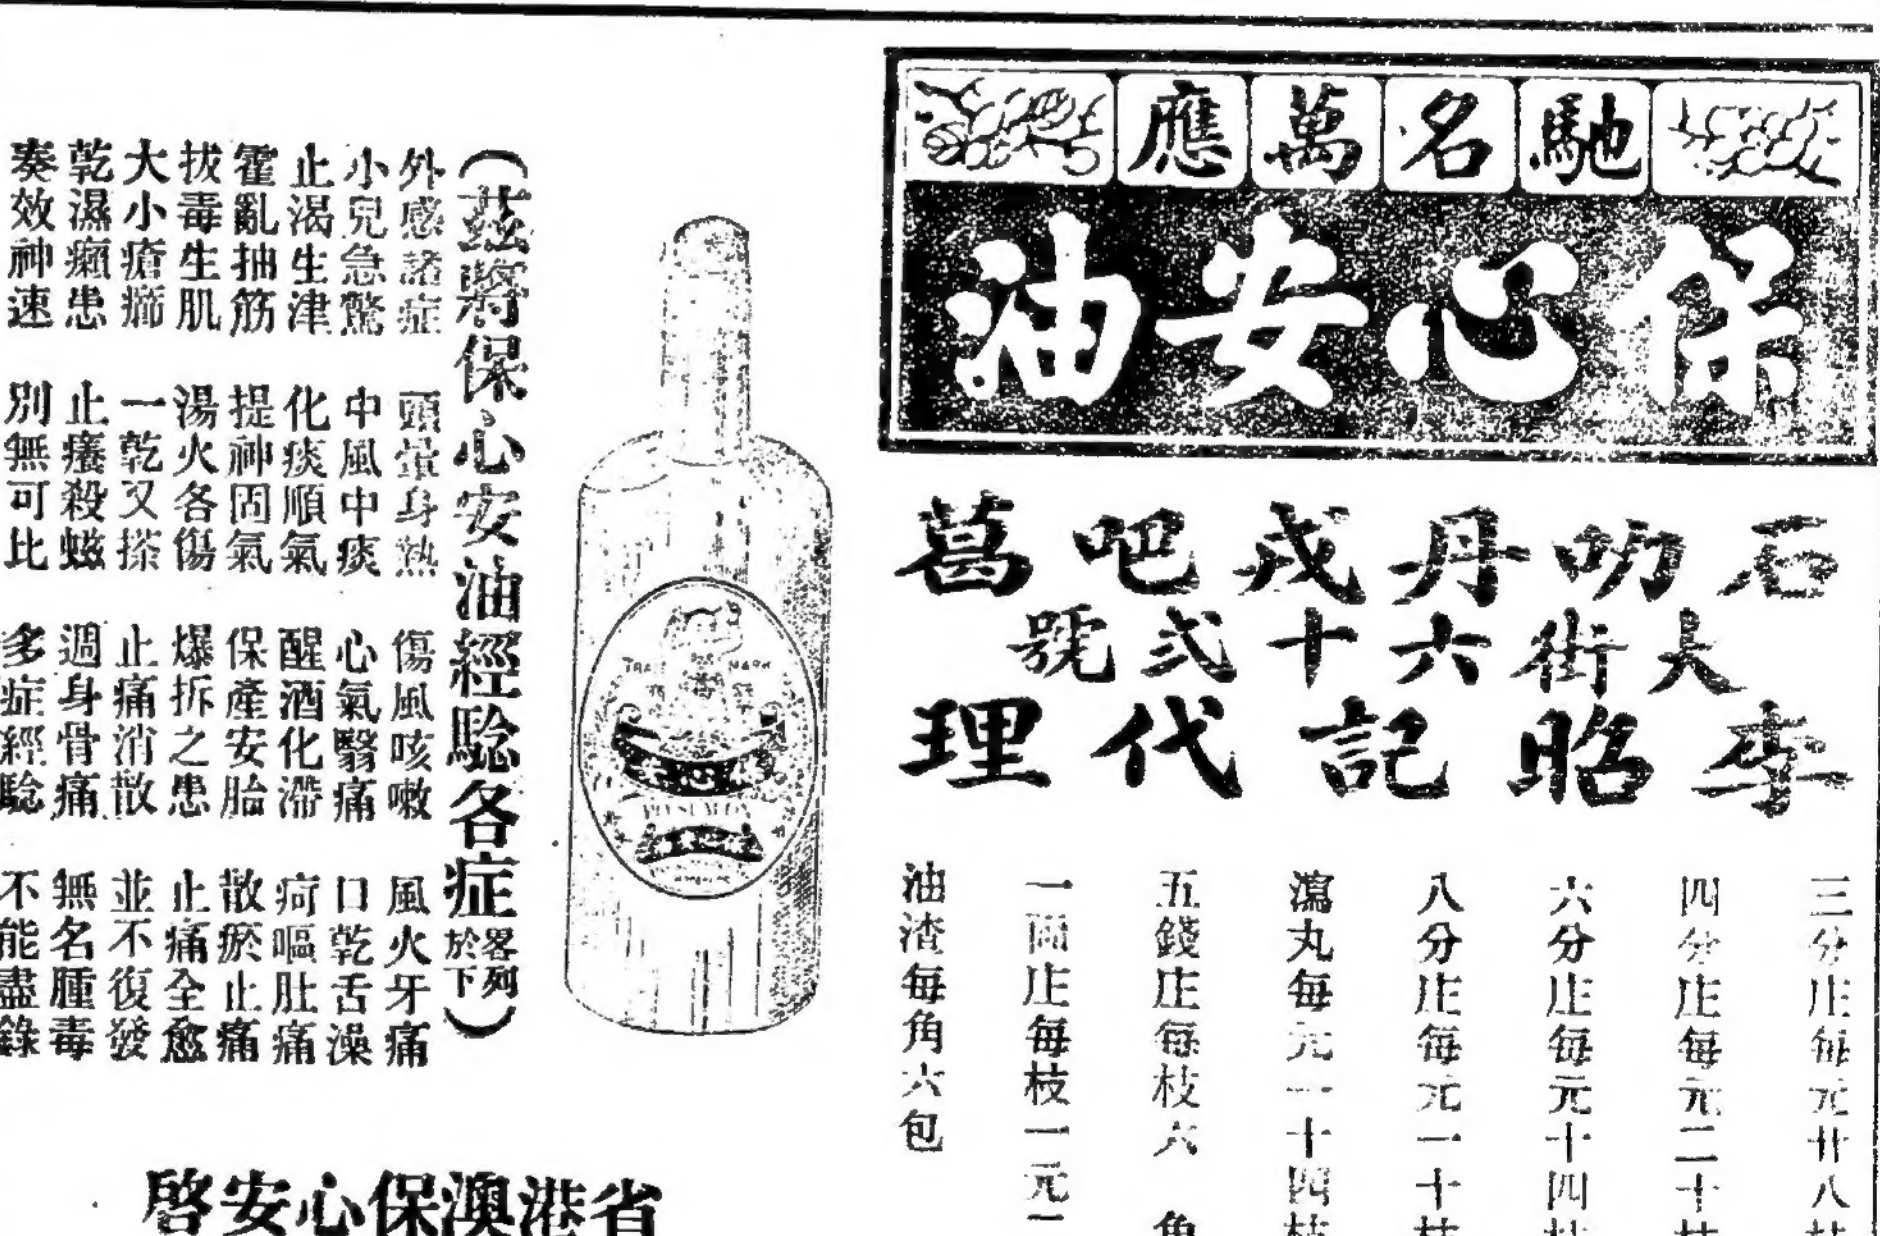 馳名萬應
保心安油
石叻丹戎吧葛
大街六十弍號
李昭記代理
三分庄每元廿八枝
四分庄每元二十枝
六分庄每元十四枝
八分庄每元一十枝
瀉丸每元一十四枝
五錢庄每枝六角
一兩庄每枝一元二
油渣每角六包
TRADE MARK
(茲將保心安油經驗各症畧列於下)
外感諸症 頭暈身熱 傷風咳嗽 風火牙痛
小兒急驚 中風中痰 心氣翳痛 口乾舌澡
止渴生津 化痰順氣 醒酒化滯 疴嘔肚痛
霍亂抽筋 提神固氣 保產安胎 散瘀止痛
拔毒生肌 湯火各傷 爆拆之患 止痛全愈
大小瘡癤 一乾又搽 止痛消散 並不復發
乾濕癩患 止癢殺蟣 週身骨痛 無名腫毒
奏效神速 別無可比 多症經驗 不能盡錄
省港澳保心安啓